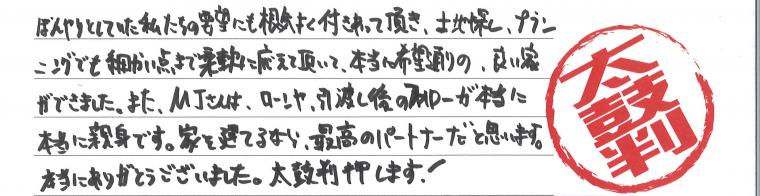 ぼんやりとしていた私たちの要望にも根気よく付きあって頂き、土地探し、プラン
ニングでも細かい点まで柔軟に応えて頂いて、本当に希望通りの、良い家
ができました。また、MJさんは、ローンや、引渡し後のフォローが本当に
本当に親身です。家を建てるなら、最高のパートナーだと思います。
本当にありがとうございました。太鼓判押します！
太鼓判